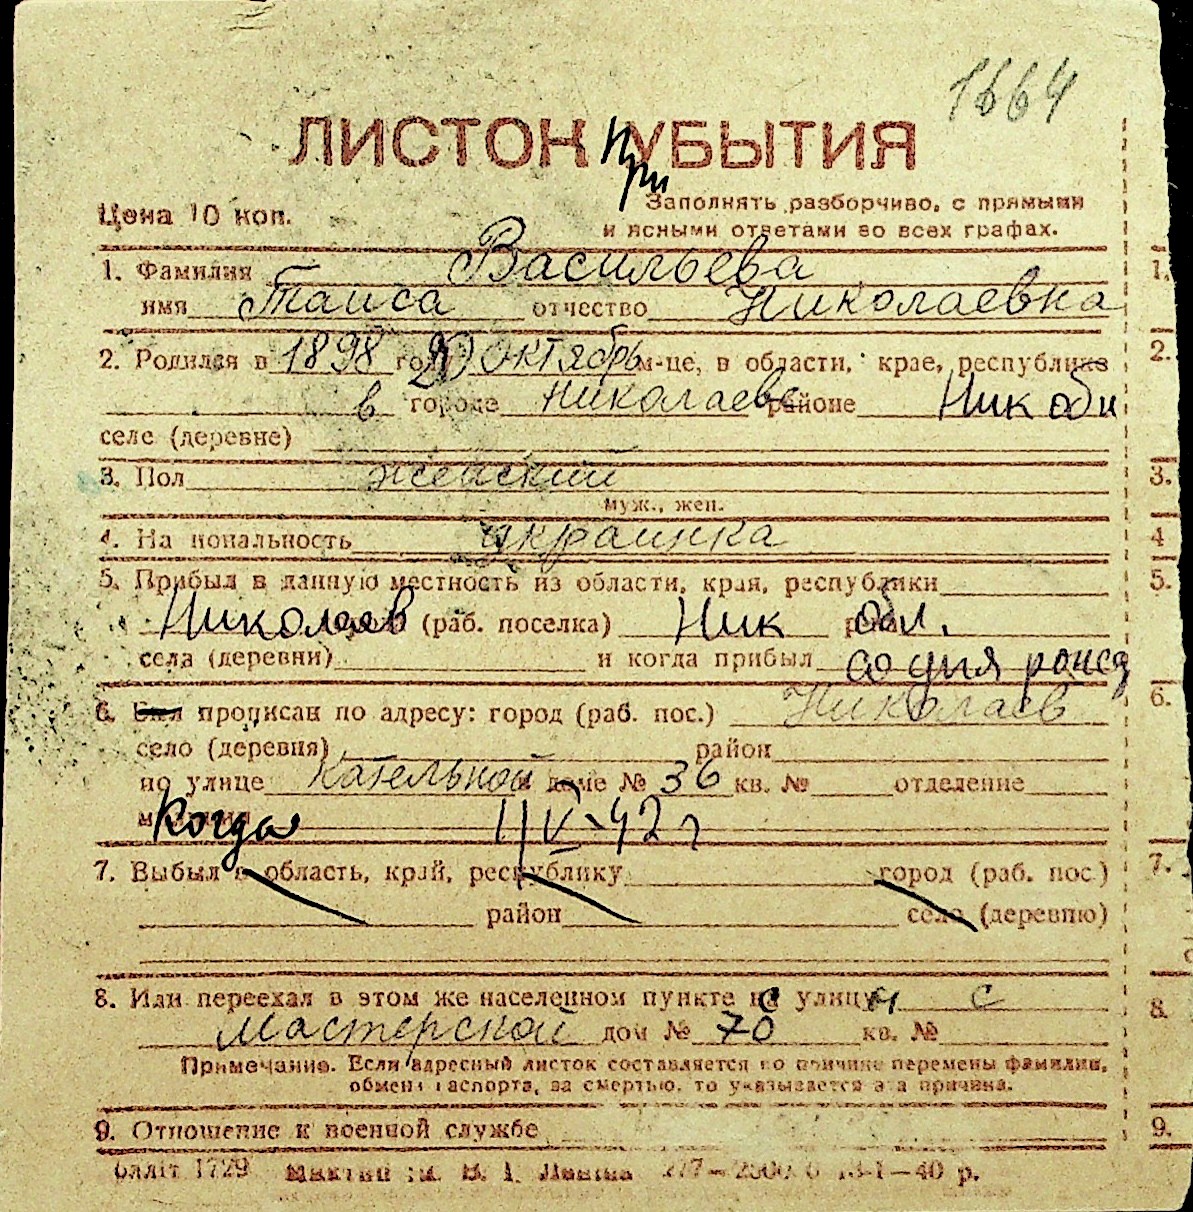 1664
ЛИСТОК УБЫТИЯ
При
Цена 10 коп.
Заполнять разборчиво, с прямыми
и ясными ответами во всех графах.
1. Фамилия Васильева
имя Таиса отчество Николаевна
2. Родился в 1898 году 20 октябрь м-це, в области, крае, республике
в городе Николаеве районе Ник обл
селе (деревне)
3. Пол женский
муж., жен.
4. Национальность украинка
5. Прибыл в данную местность из области, края, республики
Николаев (раб. поселка) Ник обл.
села (деревни) и когда прибыл со дня рожд
6. Был прописан по адресу: город (раб. пос.) Николаев
село (деревня) район
по улице Кательной доме № 36 кв. № отделение
Когда 11/V-42 г
7. Выбыл в область, край, республику город (раб. пос.)
район село (деревню)
8. Или переехал в этом же населенном пункте на улицу с
Мастерской дом № 70 кв. №
Примечание. Если адресный листок составляется по причине перемены фамилии,
обмена паспорта, за смертью, то указывается эта причина.
9. Отношение к военной службе
1729 В. І. Леніна 277— 13-1—40 р.
1.
2.
3.
4
5.
6.
7.
8.
9.